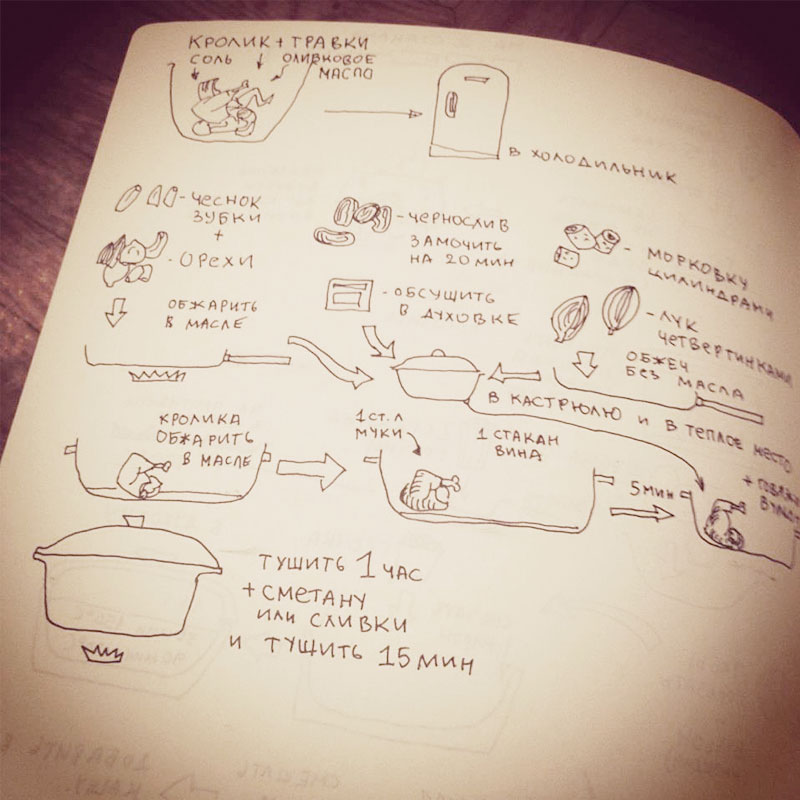 КРОЛИК + ТРАВКИ
СОЛЬ ОЛИВКОВОЕ
МАСЛО
В ХОЛОДИЛЬНИК
- ЧЕСНОК
ЗУБКИ
+
- ОРЕХИ
ОБЖАРИТЬ
В МАСЛЕ
- ЧЕРНОСЛИВ
ЗАМОЧИТЬ
НА 20 МИН
- ОБСУШИТЬ
В ДУХОВКЕ
- МОРКОВКУ
ЦИЛИНДРАМИ
- ЛУК
ЧЕТВЕРТИНКАМИ
ОБЖЕЧ
БЕЗ МАСЛА
В КАСТРЮЛЮ И В ТЕПЛОЕ МЕСТО
КРОЛИКА
ОБЖАРИТЬ
В МАСЛЕ
1 СТ. Л
МУКИ
1 СТАКАН
ВИНА
5 МИН
+
ТУШИТЬ 1 ЧАС
+ СМЕТАНУ
ИЛИ СЛИВКИ
И ТУШИТЬ 15 МИН